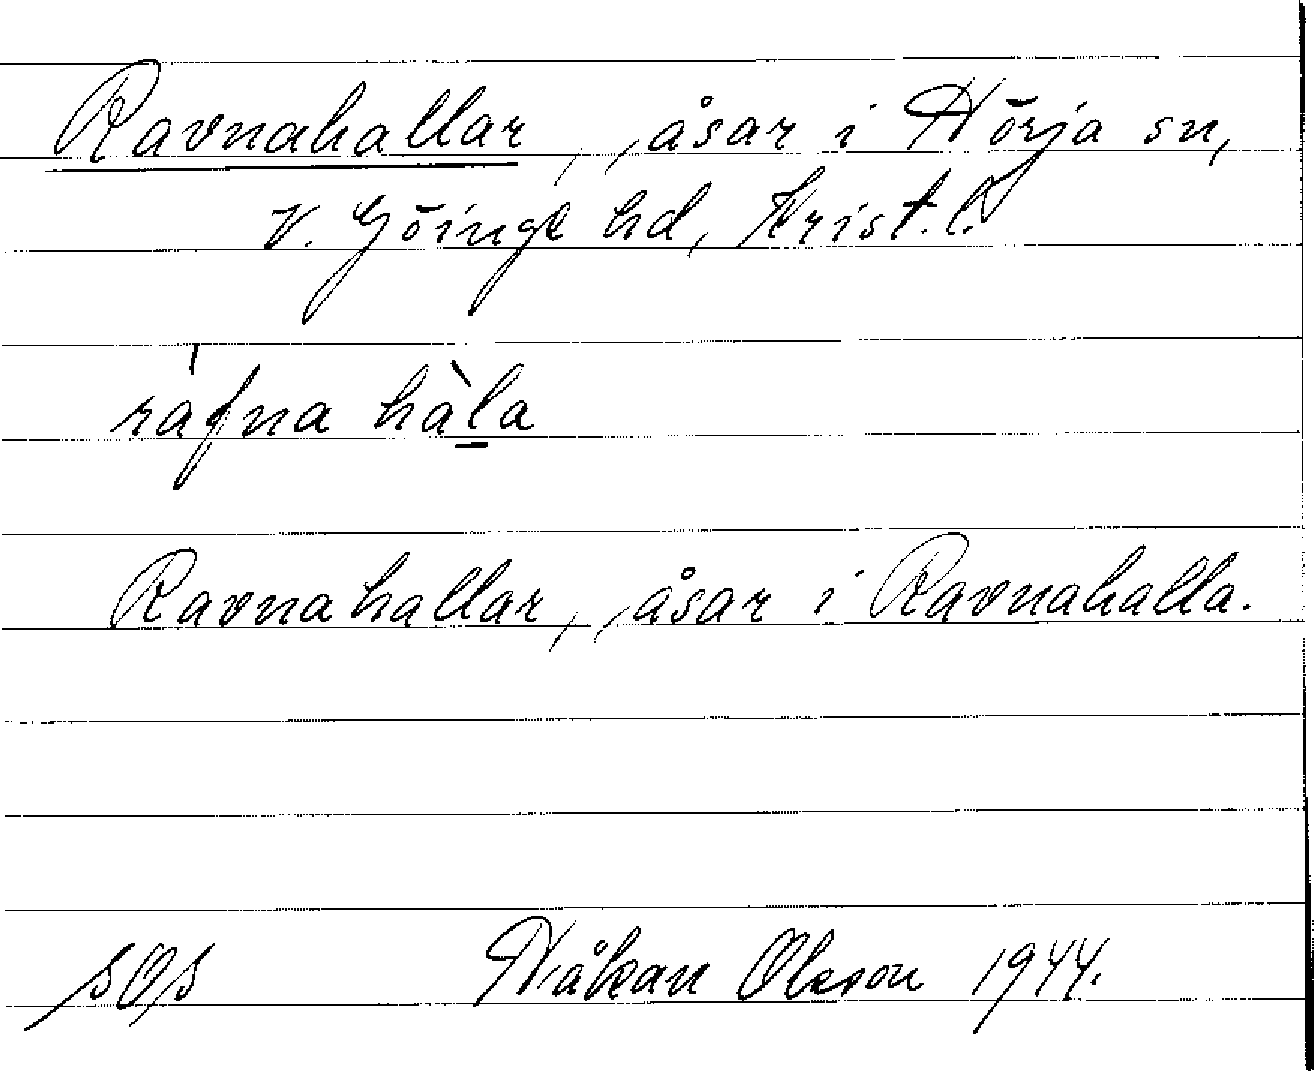 Ravnahallar, åsar i Hörja sn,
V. Göinge hd, Krist. l.
ráfna hàla
Ravnahallar, åsar i Ravnahalla.
Håkan Olsson 1944.